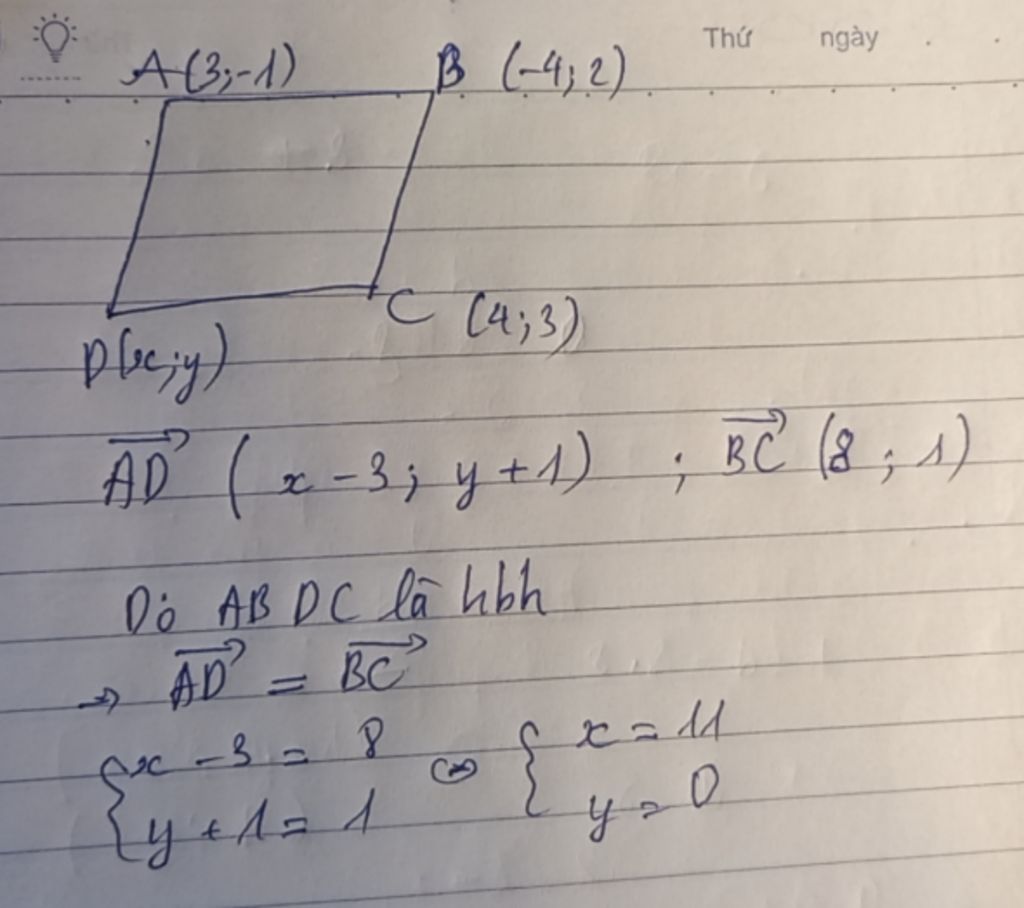 Thứ ngày . .
A(3;-1) B (-4;2)
C (4;3)
D(x;y)
AD→ (x-3; y+1) ; BC→ (8; 1)
Dó ABDC là hbh
→ AD→ = BC→
{ x - 3 = 8 ⇔ { x = 11
{ y + 1 = 1 { y = 0